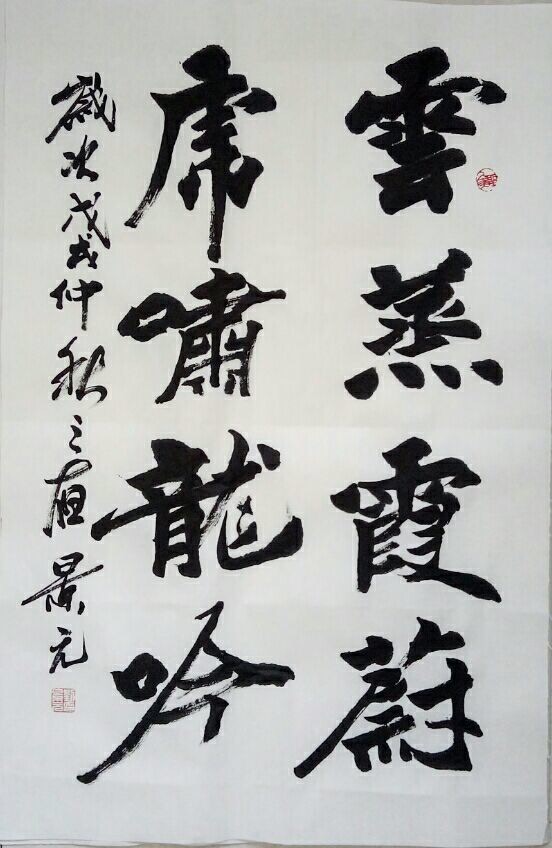 雲蒸霞蔚
虎嘯龍吟
歲次戊戌仲秋之 景元